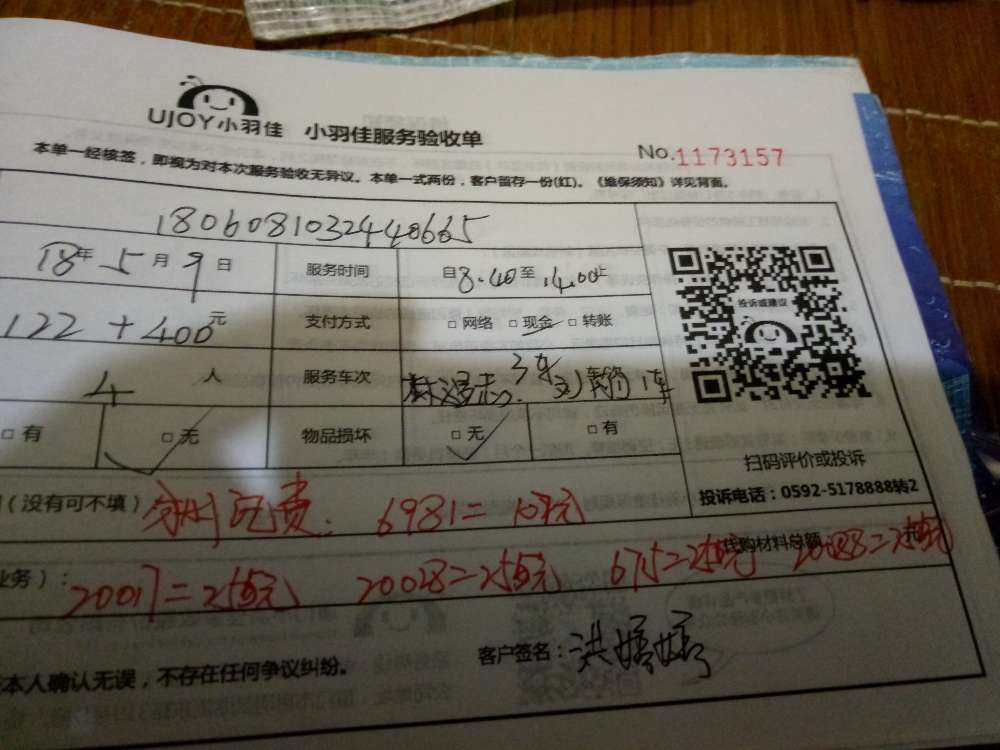 UJOY小羽佳 小羽佳服务验收单
No.1173157
本单一经核签，即视为对本次服务验收无异议。本单一式两份，客户留存一份(红)。《维保须知》详见背面。
18年5月9日 服务时间 自8.40至14.00止
122+400元 支付方式 □网络 □现金 □转账
投诉或建议
4人 服务车次
□有 □无 物品损坏 □无 □有
扫码评价或投诉
投诉电话：0592-5178888转2
(没有可不填)
业务)： 代购材料总额
20017= 20028= 675=
本人确认无误，不存在任何争议纠纷。 客户签名：洪婷婷